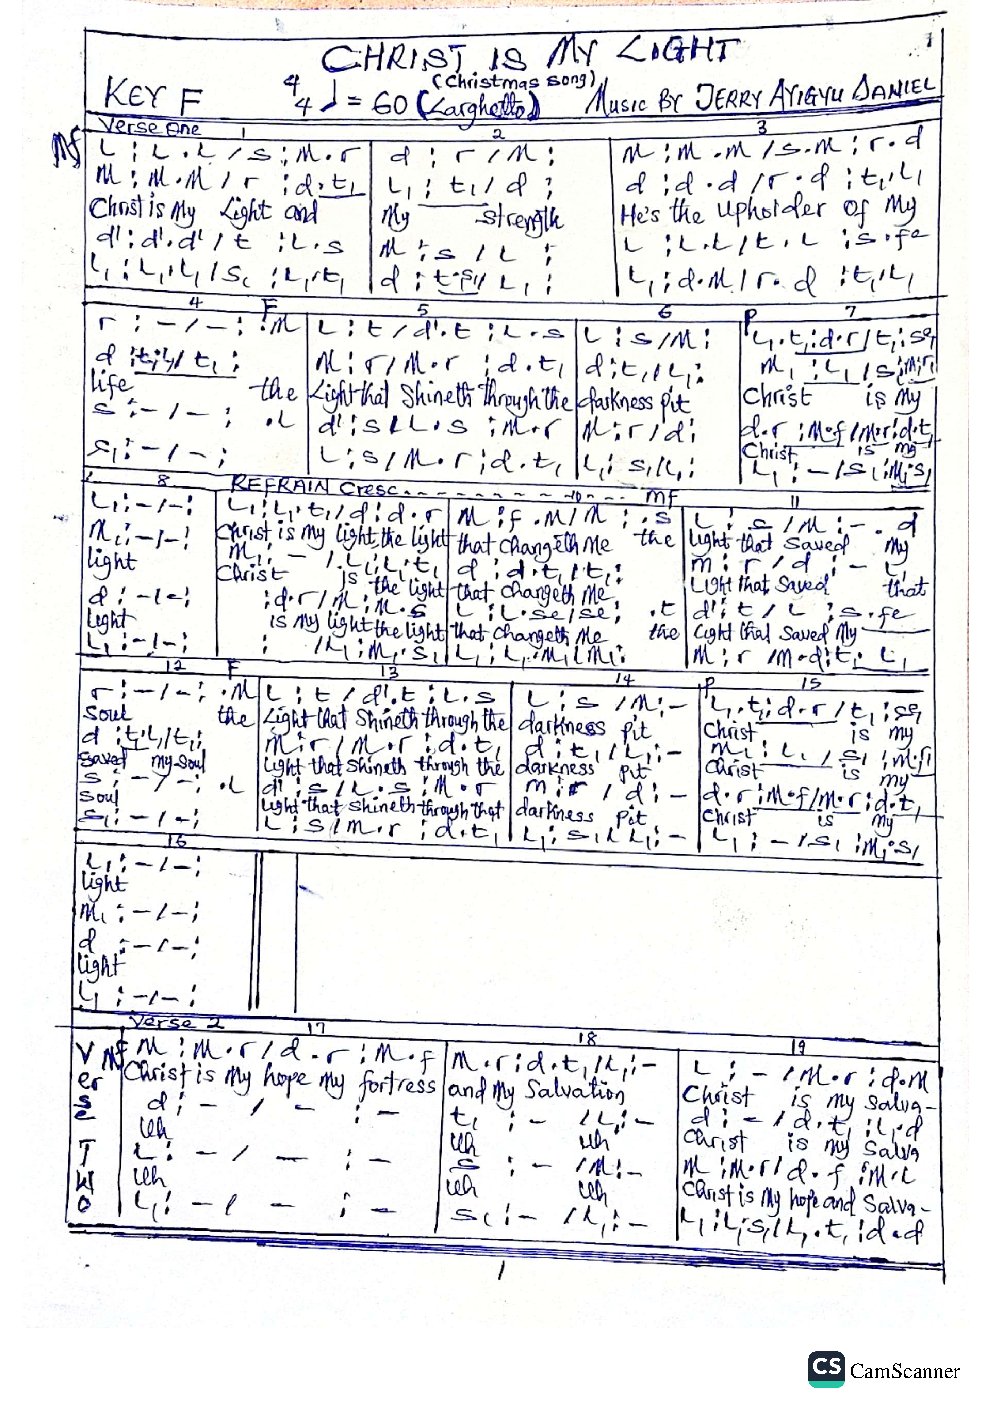 1
CHRIST IS MY LIGHT
(Christmas song)
KEY F 4/4 ♩ = 60 (Larghetto) Music BY JERRY AYIGYU DANIEL
Verse One 1 2 3
Mf L : L . L / s : M . r d : r / M : M : M . M / s . M : r . d
M : M . M / r : d . t₁ L₁ : t₁ / d : d : d . d / r . d : t₁ . L₁
Christ is My Light and My strength He's the Upholder of My
d' : d' . d' / t : L . s M : s / L : L : L . L / t . L : s . fe
L₁ : L₁ . L₁ / s₁ : L₁ . t₁ d : t₁ . s₁ / L₁ : L₁ : d . M / r . d : t₁ . L₁
4 F 5 6 P 7
r : - / - : . M L : t / d' . t : L . s L : s / M : L₁ . t₁ : d . r / t₁ : se₁
d : t₁ . L₁ / t₁ : M : r / M . r : d . t₁ d : t₁ / L₁ : M₁ : L₁ / s₁ : M₁ . r₁
life the Light that Shineth through the darkness pit Christ is My
s : - / - : . L d' : s / L . s : M . r M : r / d : d . r : M . f / M . r : d . t₁
Christ is my
s₁ : - / - : L : s / M . r : d . t₁ L₁ : s₁ / L₁ : L₁ : - / s₁ : M₁ . s₁
8 REFRAIN Cresc. - - - - - 10 - - - mf 11
L₁ : - / - : L₁ : L₁ . t₁ / d : d . r M : f . M / M : . s L : s / M : - . d
Christ is my light the light that changeth Me the light that saved My
M₁ : - / - : M₁ : - / . L₁ : L₁ . t₁ d : d . t₁ / t₁ : M : r / d : - . L₁
light Christ is the light that changeth Me Light that saved that
d : - / - : : d . r / M : M . s L : L . se / se : . t d' : t / L : s . fe
light is my light the light that changeth Me the Light that saved My
L₁ : - / - : : / L₁ : M₁ . s₁ L₁ : L₁ . M₁ / M₁ : M : r / M . d : t₁ . L₁
12 F 13 14 P 15
r : - / - : . M L : t / d' . t : L . s L : s / M : - L₁ . t₁ : d . r / t₁ : se₁
soul the Light that Shineth through the darkness pit Christ is my
d : t₁ . L₁ / t₁ : M : r / M . r : d . t₁ d : t₁ / L₁ : - M₁ : L₁ / s₁ : M₁ . r₁
saved my soul light that shineth through the darkness pit Christ is my
s : - / - : . L d' : s / L . s : M . r M : r / d : - d . r : M . f / M . r : d . t₁
soul light that shineth through that darkness pit Christ is My
s₁ : - / - : L : s / M . r : d . t₁ L₁ : s₁ / L₁ : - L₁ : - / s₁ : M₁ . s₁
16
L₁ : - / - :
light
M₁ : - / - :
d : - / - :
light
L₁ : - / - :
Verse 2 17 18 19
Verse Two
Mf M : M . r / d . r : M . f M . r : d . t₁ / L₁ : - L : - / M . r : d . M
Christ is My hope my fortress and My Salvation Christ is my Salva-
d : - / - : - t₁ : - / L₁ : - d : - / d . t₁ : L₁ . d
Uh Uh Uh Christ is my Salva
L : - / - : - s : - / M : - M : M . r / d . f : M . L
Uh Uh Uh Christ is My hope and Salva-
L₁ : - / - : - s₁ : - / L₁ : - L₁ : L₁ . s₁ / L₁ . t₁ : d . d
1
CS CamScanner